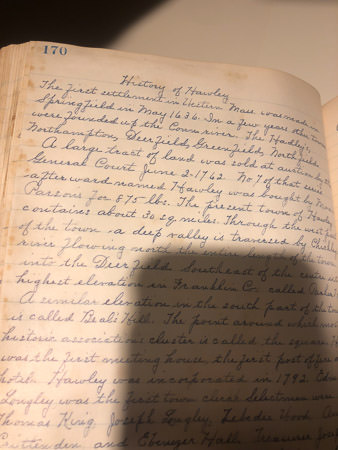 170
History of Hawley
The first settlement in Western Mass. was made in
Springfield in May 1636. In a few years other
were founded up the Conn river. The Hadley's,
Northampton, Deerfield, Greenfield, Northfield.
A large tract of land was sold at auction by
General Court June 2-1762. No 7 of that series
afterward named Hawley was bought by Moses
Parsons for 875 lbs. The present town of Hawley
contains about 30 sq. miles. Through the west part
of the town a deep valley is traversed by
river flowing north the entire length of the town
into the Deerfield. Southeast of the center
highest elevation in Franklin Co called Parker
A similar elevation in the south part of the to
is called Beals Hill. The point around which mos
historic associations cluster is called the square
was the first meeting house, the first post office
hotel. Hawley was incorporated in 1792.
Longley was the first town clerk. Selectmen were
Thomas King, Joseph Longley, Zebedee Wood
Crittenden, and Ebenezer Hall. Treasurer